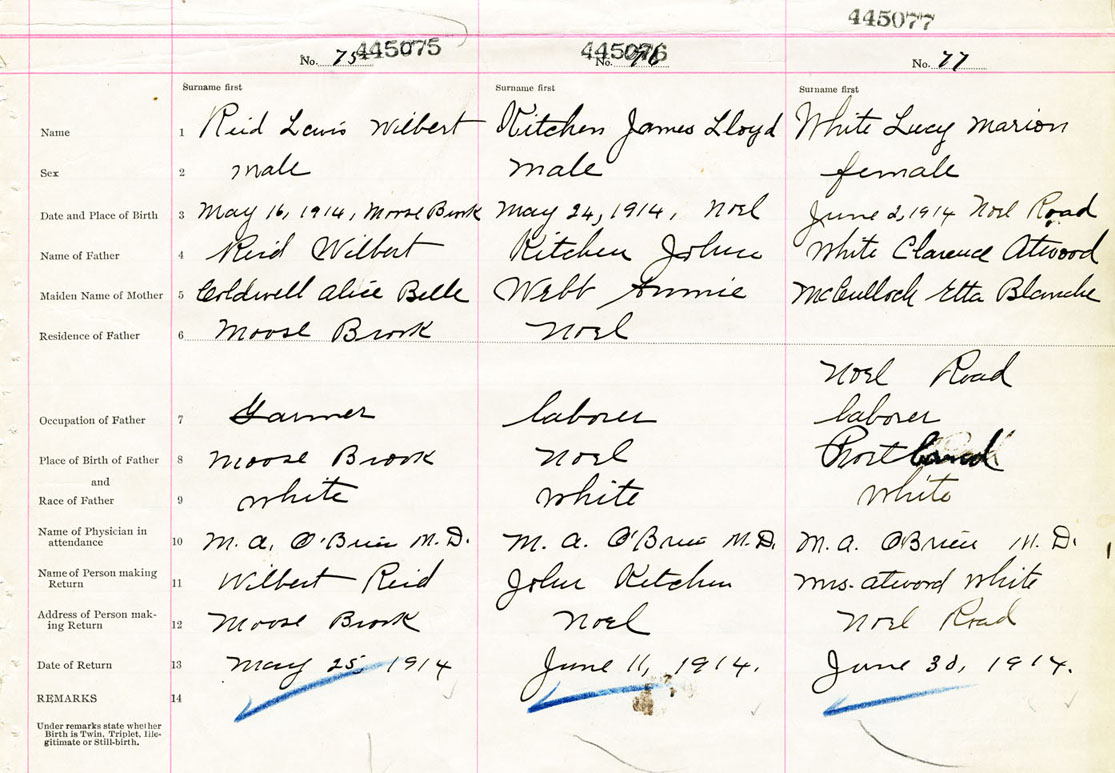 445077
No. 75 445075 445076 No. 76 No. 77
Surname first Surname first Surname first
Name 1 Reid Lewis Wilbert Kitchen James Lloyd White Lucy Marion
Sex 2 male male female
Date and Place of Birth 3 May 16, 1914, Moose Brook May 24, 1914, Noel June 2, 1914 Noel Road
Name of Father 4 Reid Wilbert Kitchen John White Clarence Atwood
Maiden Name of Mother 5 Coldwell Alice Belle Webb Annie McCulloch Etta Blanche
Residence of Father 6 Moose Brook Noel
Noel Road
Occupation of Father 7 Farmer laborer laborer
Place of Birth of Father 8 Moose Brook Noel
and
Race of Father 9 white white white
Name of Physician in
attendance 10 M. A. O'Brien M.D. M. A. O'Brien M.D. M. A. O'Brien M.D.
Name of Person making
Return 11 Wilbert Reid John Kitchen Mrs. Atwood White
Address of Person mak-
ing Return 12 Moose Brook Noel Noel Road
Date of Return 13 May 25 1914 June 11, 1914. June 30, 1914.
REMARKS 14
Under remarks state whether
Birth is Twin, Triplet, Ille-
gitimate or Still-birth.